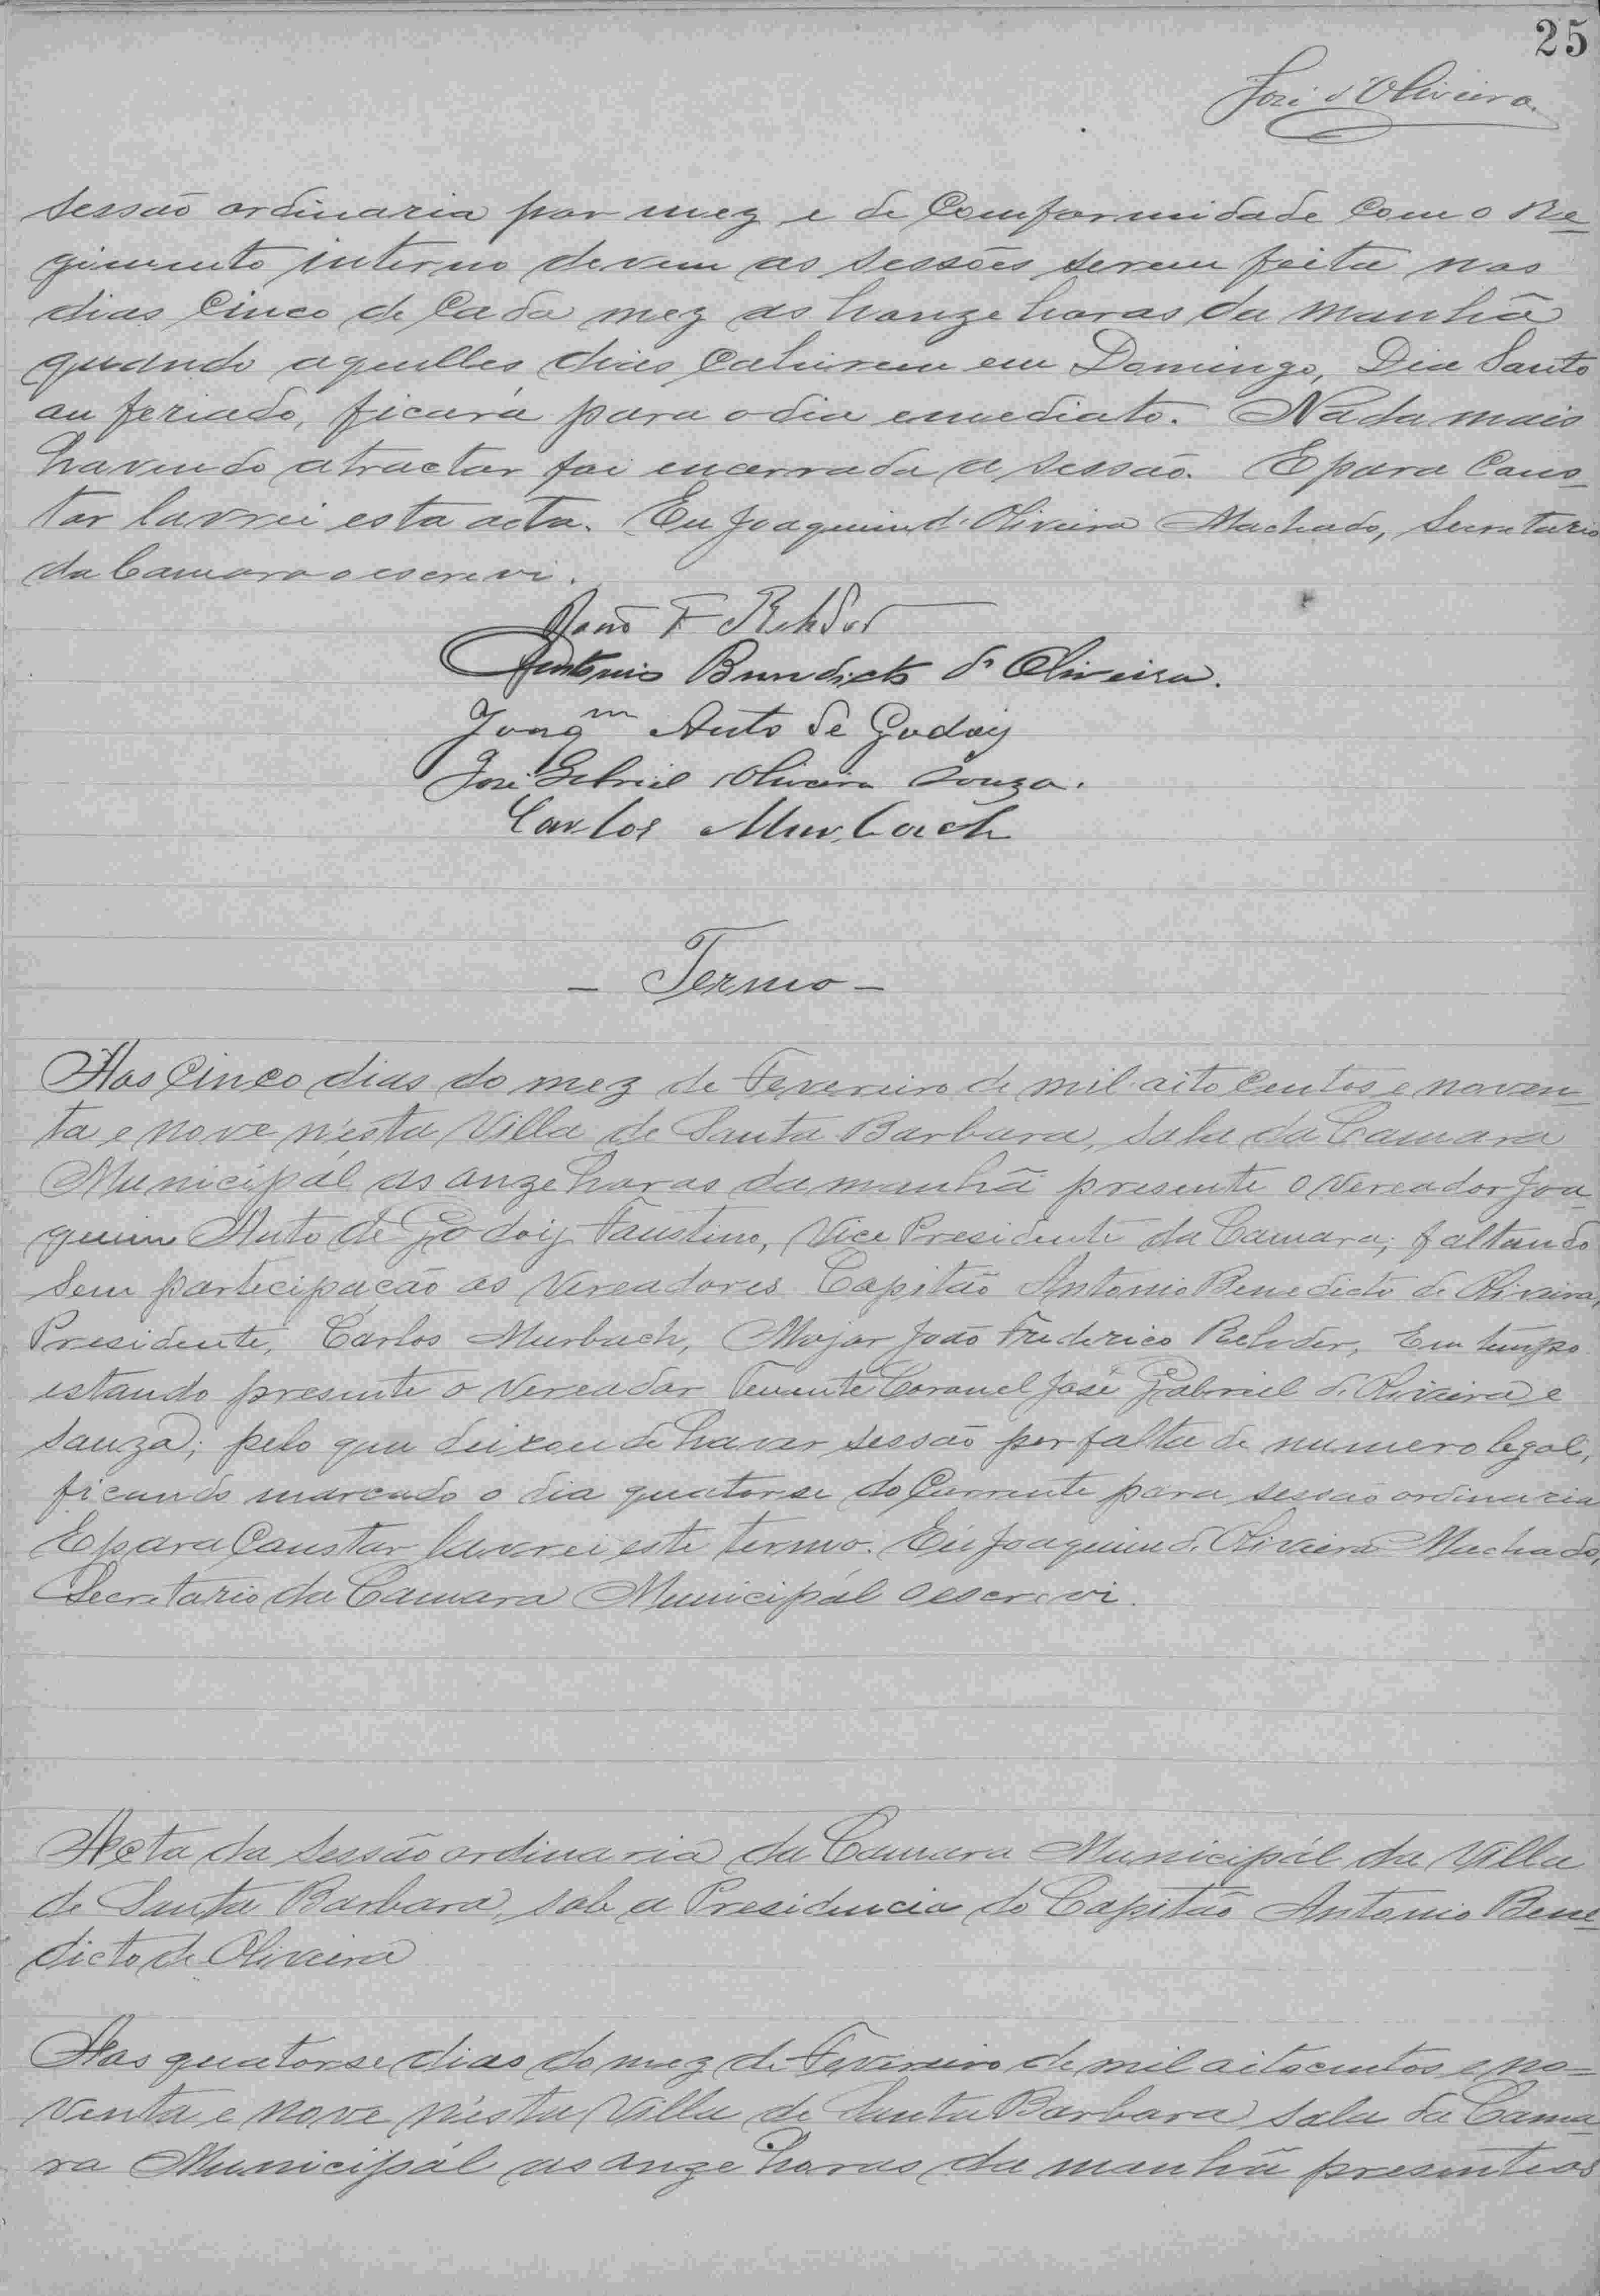 25
José d'Oliveira
sessão ordinaria por mez e de Comformidade Com o Re-
gimento interno devem as sessões serem feita nos
dias Cinco de Cada mez as honze horas da manhã
quando aquelles dias Cahirem em Domingo, Dia Santo
ou feriado, ficará para o dia emediato. Nada mais
havendo a tractar foi encerrada a sessão. E para Cons-
tar lavrei esta acta. Eu Joaquim d'Oliveira Machado, Secretario
da Camara o escrevi.
João F Rehder
Antonio Benedicto d'Oliveira.
Joaqm Auto de Godoy
José Gabriel Oliveira Souza.
Carlos Murbach
- Termo -
Aos Cinco dias do mez de Fevereiro de mil oito Centos e noven-
ta e nove n'esta Villa de Santa Barbara, sala da Camara
Municipál as onze horas da manhã presente o Vereador Joa-
quim Auto de Godoiy Faustino, Vice Presidente da Camara; faltando
sem partecipação os Vereadores Capitão Antonio Benedicto de Oliveira,
Presidente, Carlos Murbach, Major João Frederico Rehder, Em tempo
estando presente o Vereador Tenente Coronel José Gabriel d'Oliveira e
Souza; pelo que deixou de haver sessão por falta de numero legal,
ficando marcado o dia quatorse do Currente para sessão ordinaria
E para Constar lavrei este termo. Eu Joaquim d'Oliveira Machado,
Secretario da Camara Municipál o escrevi.
Acta da Sessão ordinaria da Camara Municipál da Villa
de Santa Barbara, sob a Presidencia do Capitão Antonio Bene-
dicto de Oliveira
Aos quatorse dias do mez de Fevereiro de mil oitocentos e no=
venta e nove n'esta Villa de Santa Barbara sala da Cama-
ra Municipál as onze horas da manhã presentes os